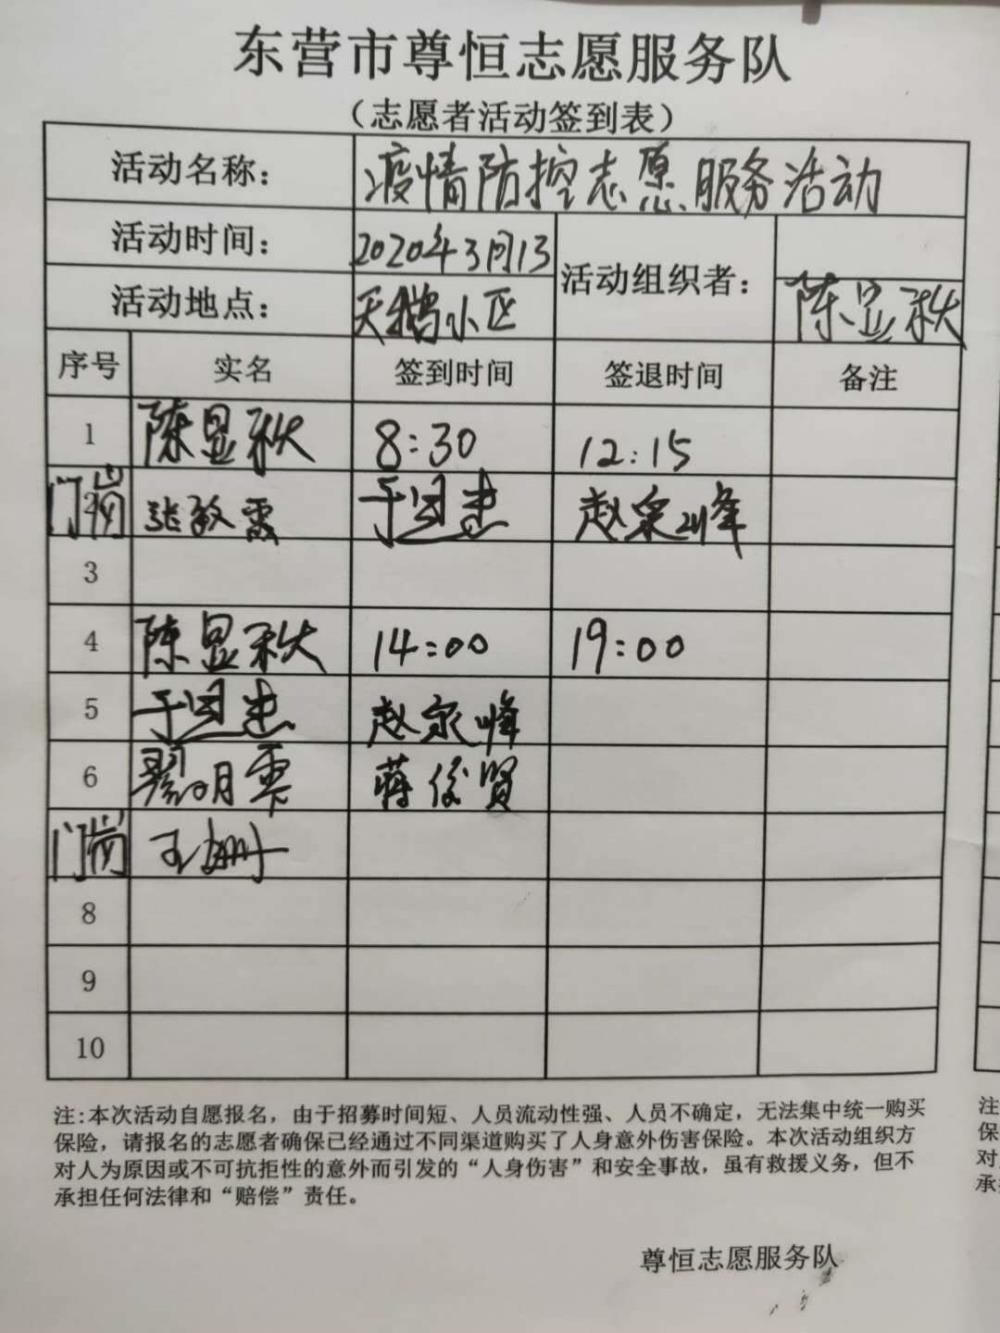 东营市尊恒志愿服务队
（志愿者活动签到表）
活动名称： 疫情防控志愿服务活动
活动时间： 2020年3月13
活动组织者： 陈显秋
活动地点： 天鹅小区
序号 实名 签到时间 签退时间 备注
1 陈显秋 8:30 12:15
门岗 2 张敏霞 于国忠 赵泉峰
3
4 陈显秋 14:00 19:00
5 于国忠 赵泉峰
6 翟明霞 蒋俊贤
门岗 王珊
8
9
10
注:本次活动自愿报名，由于招募时间短、人员流动性强、人员不确定，无法集中统一购买
保险，请报名的志愿者确保已经通过不同渠道购买了人身意外伤害保险。本次活动组织方
对人为原因或不可抗拒性的意外而引发的“人身伤害”和安全事故，虽有救援义务，但不
承担任何法律和“赔偿”责任。
尊恒志愿服务队
注
保
对
承